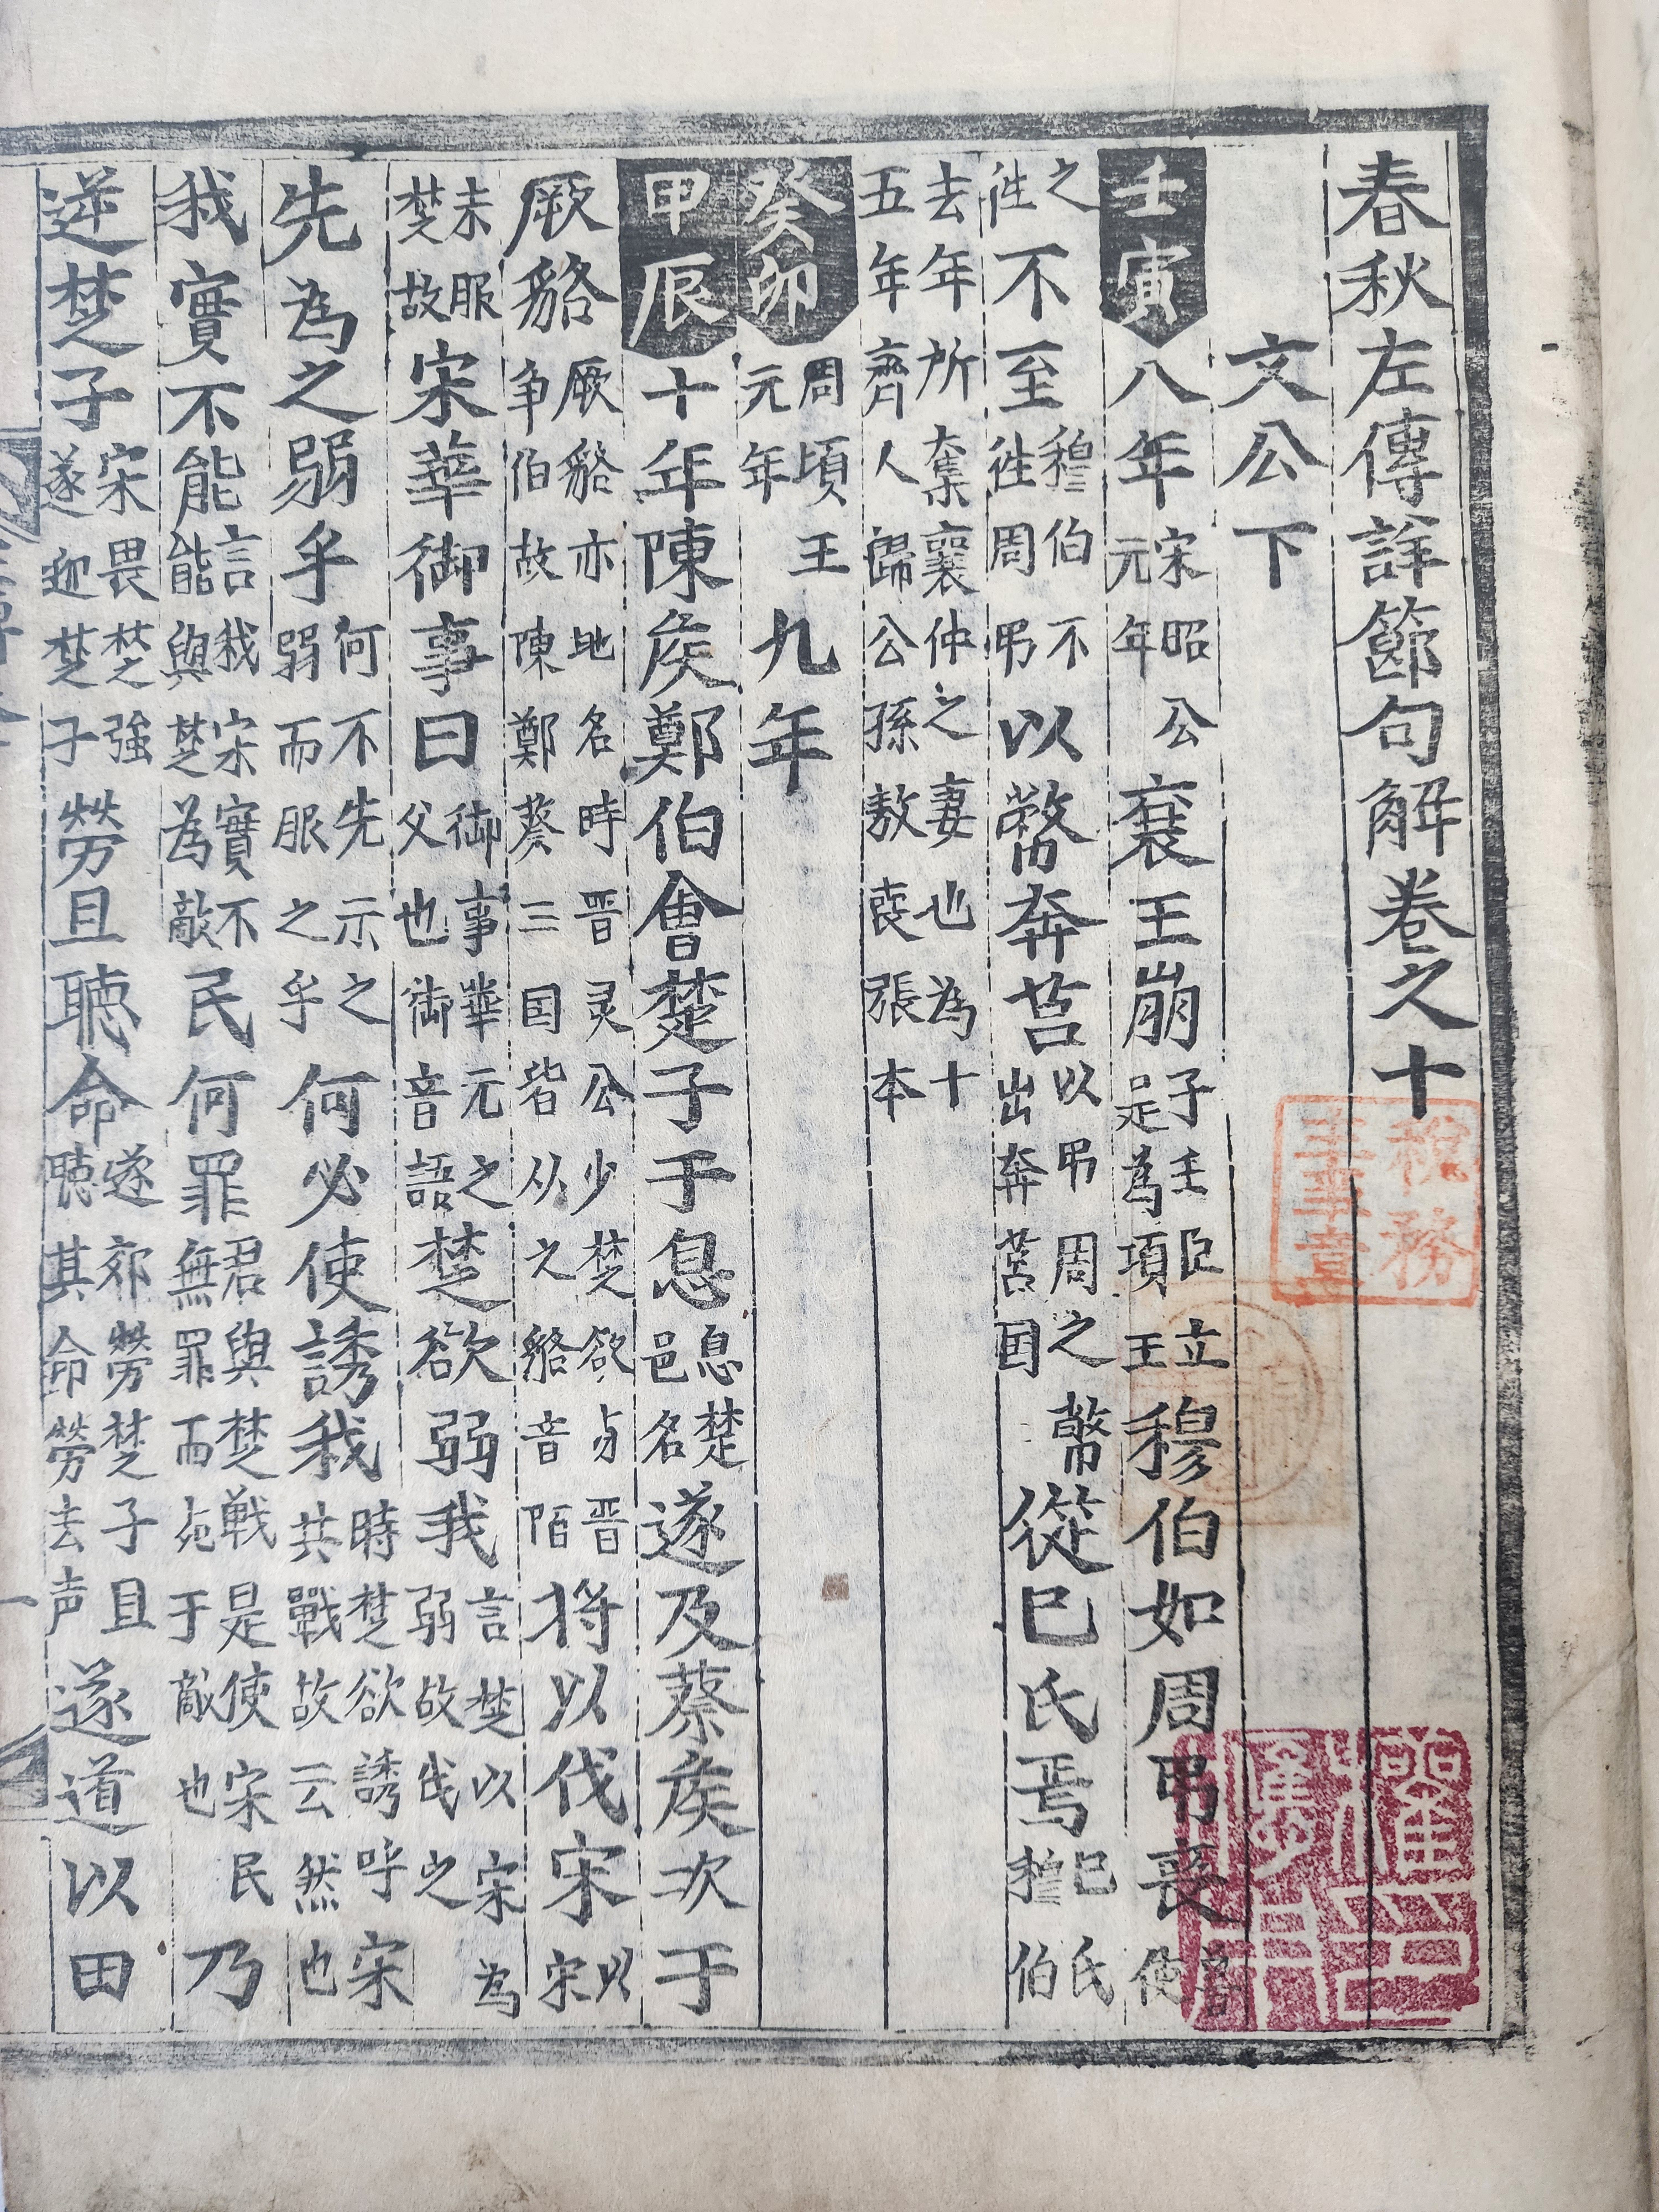 春秋左傳詳節句解卷之十
文公下
壬寅八年宋昭公元年襄王崩子壬臣立是為項王穆伯如周弔喪魯使
之徃不至穆伯不徃周弔以幣奔莒以弔周之幣出奔莒国從己氏焉己氏穆伯
去年所奪襄仲之妻也為十五年齊人歸公孫敖丧張本
癸卯周頃王元年九年
甲辰十年陳侯鄭伯會楚子于息息楚邑名遂及蔡侯次于
厥貉厥貉亦地名時晋灵公少楚欲与晋争伯故陳鄭蔡三国皆从之貉音陌将以伐宋以宋
未服楚故宋華御事曰御事華元之父也御音語楚欲弱我言楚以宋為弱故伐之
先為之弱乎何不先示之弱而服之乎何必使誘我時楚欲誘呼宋共戰故云然也
我實不能言我宋實不能與楚為敵民何罪君與楚戦是使宋民無罪而死于敵也乃
逆楚子宋畏楚強遂迎楚子勞且聽命遂郊勞楚子且聴其命勞去声遂道以田
税務